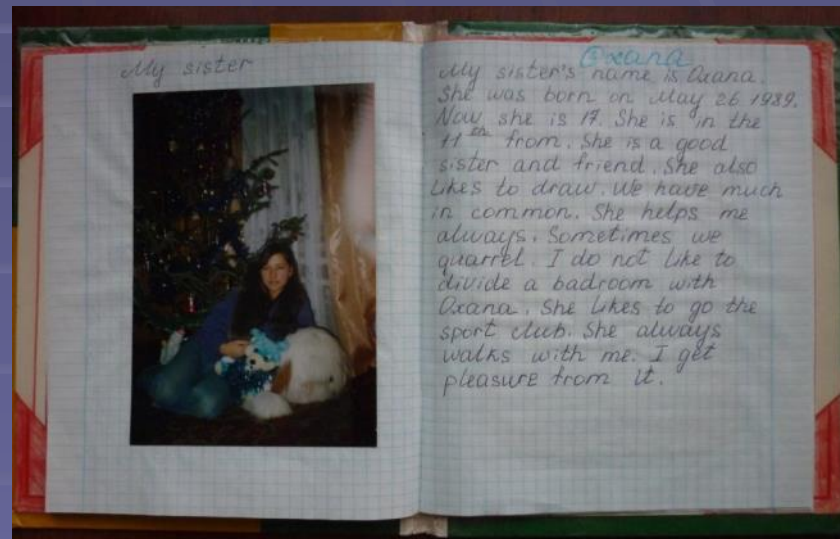 My sister
Oxana
My sister's name is Oxana.
She was born on May 26 1989.
Now she is 17. She is in the
11th from. She is a good
sister and friend. She also
likes to draw. We have much
in common. She helps me
always. Sometimes we
quarrel. I do not like to
divide a badroom with
Oxana. She likes to go the
sport club. She always
walks with me. I get
pleasure from it.